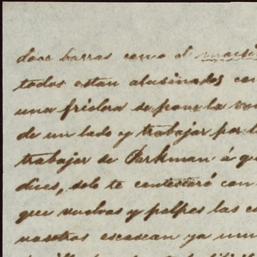 doce barras como el
todos estan alucinados con
una friolera se pone la
de un lado y trabajar por l
trabajar de Parkman á qu
dices, solo te contestaré con
que vuelvas y palpes las c
nosotros escasean ya